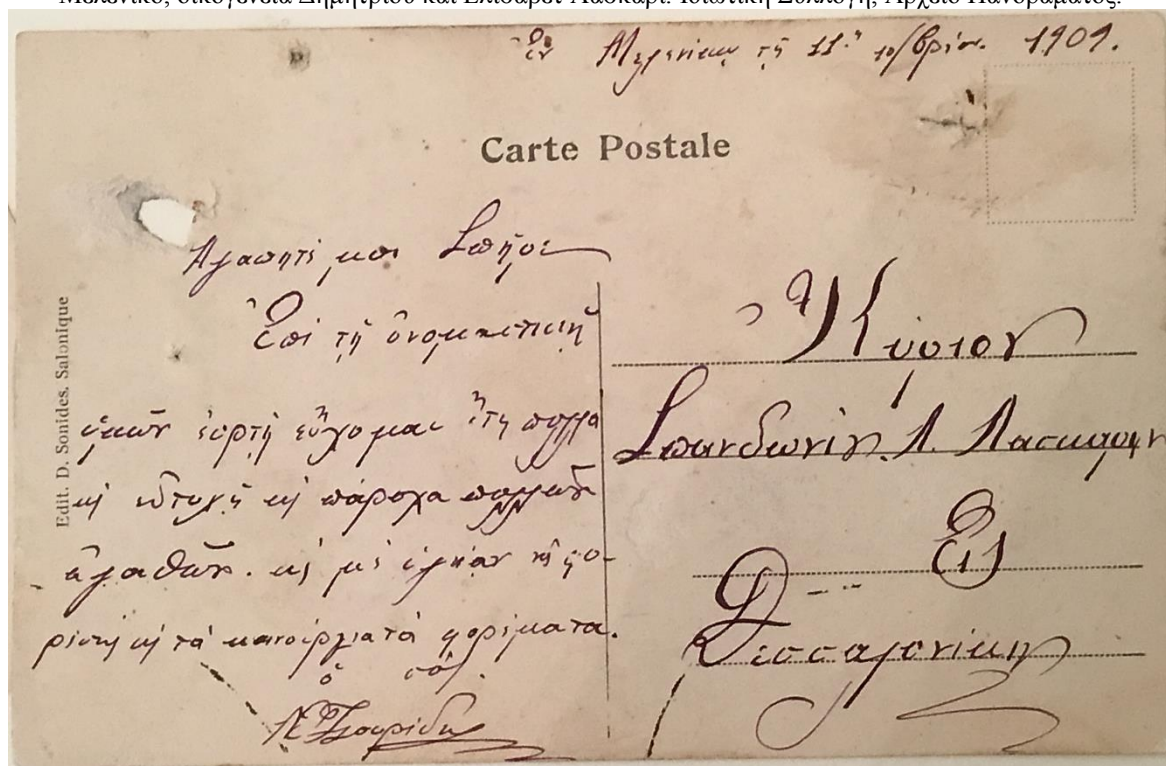 Μελένικο, οικογένεια Δημητρίου και Ελισάβετ Λάσκαρι. Ιδιωτική Συλλογή, Αρχείο Πανοράματος.
Ἐν Μελενίκῳ τῇ 11ῃ 10/βρίου. 1909.
Carte Postale
Ἀγαπητέ μοι Σπῦρε
Ἐπὶ τῇ ὀνομαστικῇ
ὑμῶν ἑορτῇ εὔχομαι ἔτη πολλὰ
κὶ εὐτυχῆ κὶ πάροχα πολλῶν
ἀγαθῶν. κὶ μὲ ὑγείαν νὰ φο-
ρέσῃς κὶ τὰ καινούργια τὰ φορέματα.
ὁ σὸς
Edit. D. Sonides. Salonique
Κύριον
Σπυρδωνίδ. Λ. Λάσκαρην
Εἰς
Θεσσαλονίκην